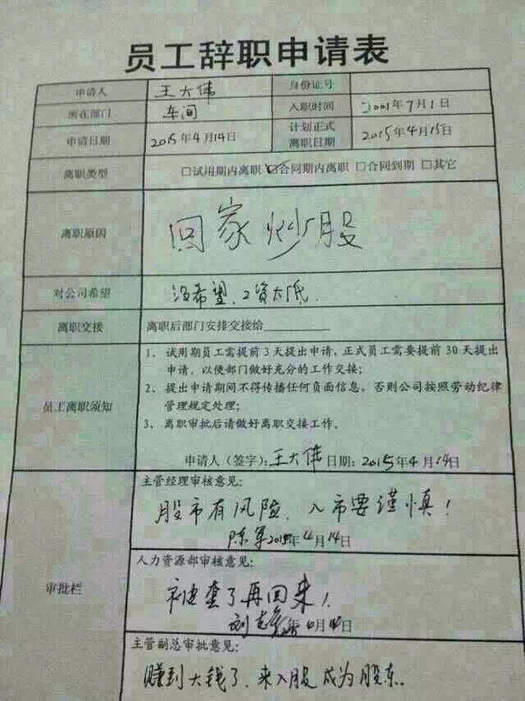 员工辞职申请表
申请人 王大伟 身份证号
所在部门 车间 入职时间 2001年7月1日
申请日期 2015年4月14日 计划正式离职日期 2015年4月15日
离职类型 □试用期内离职 ☑合同期内离职 □合同到期 □其它
离职原因 回家炒股
对公司希望 没希望、工资太低.
离职交接 离职后部门安排交接给
员工离职须知
1、试用期员工需提前3天提出申请,正式员工需要提前30天提出
申请,以便部门做好充分的工作交接;
2、提出申请期间不得传播任何负面信息,否则公司按照劳动纪律
管理规定处理;
3、离职审批后请做好离职交接工作。
申请人(签字):王大伟 日期:2015年4月14日
审批栏
主管经理审核意见:
股市有风险、入市要谨慎!
陈军 2015年4月14日
人力资源部审核意见:
被套了再回来!
年4月14日
主管副总审批意见:
赚到大钱了.来入股成为股东.